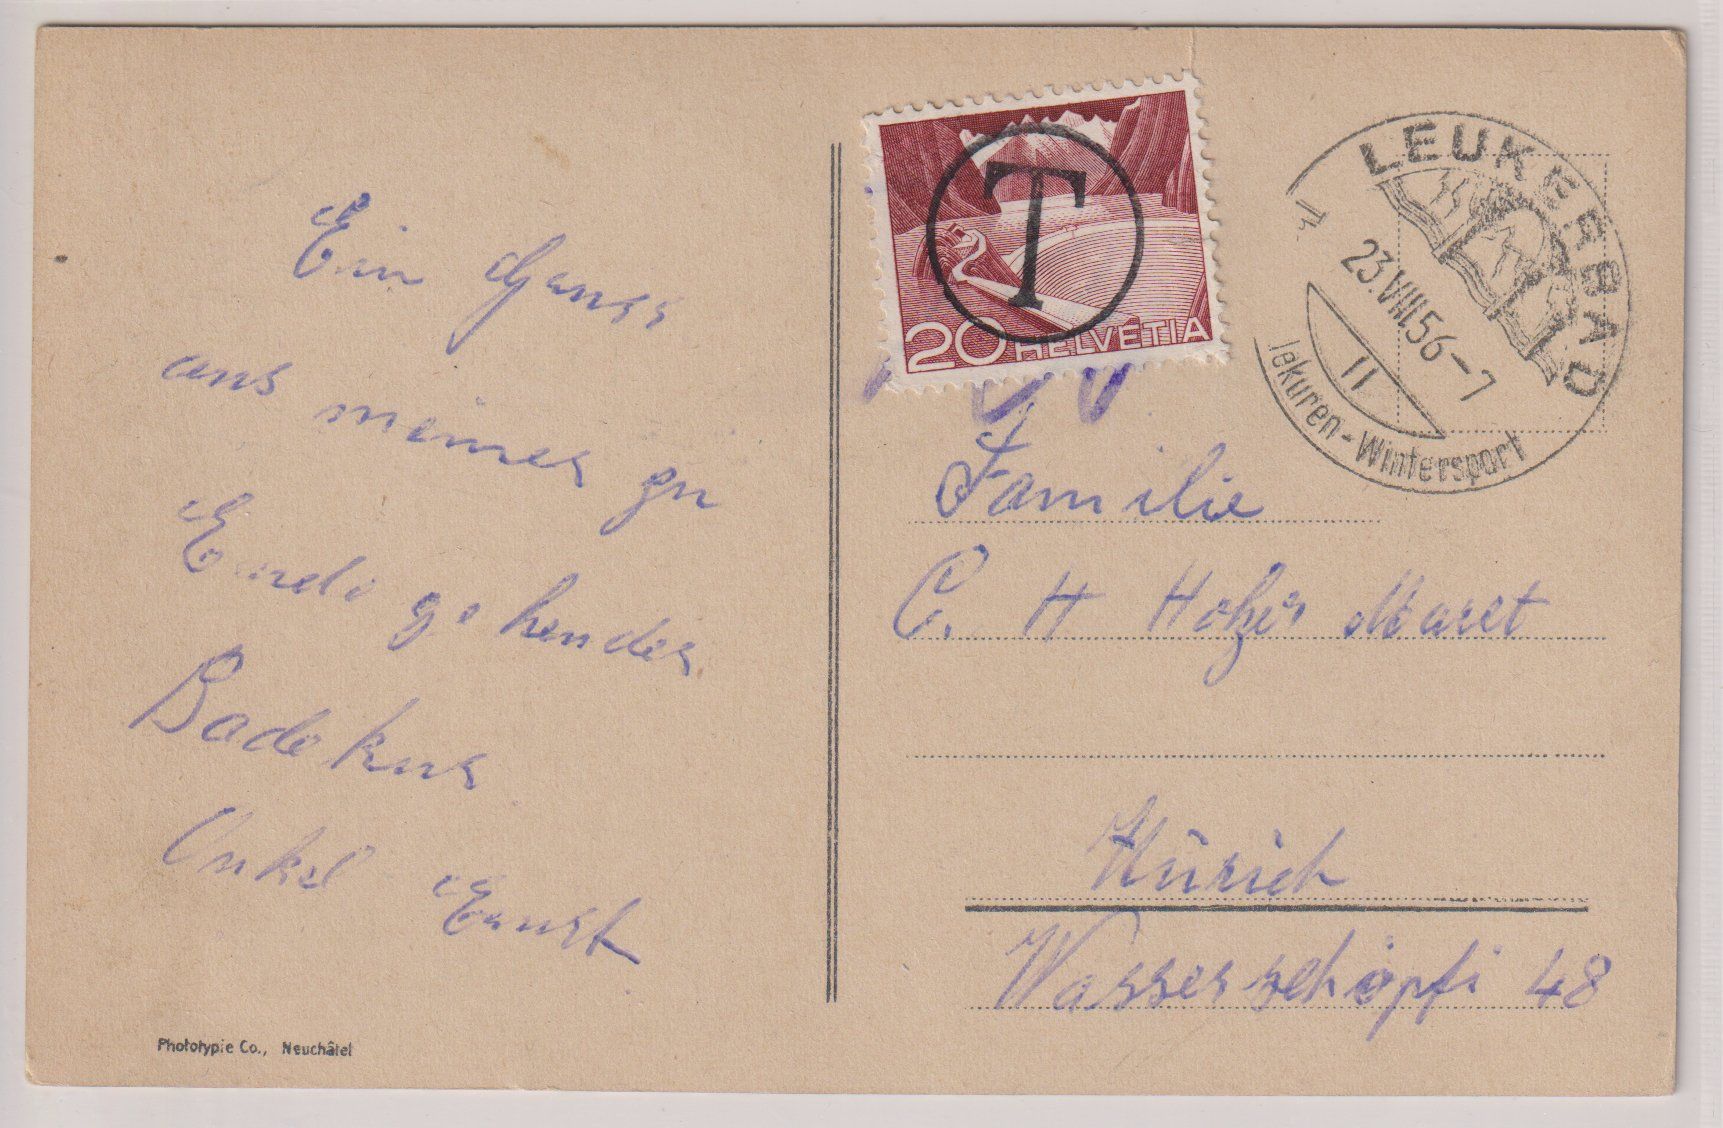 Ein Gruss
aus meiner zu
Ende gehender
Badekur
Onkel Ernst
Phototypie Co., Neuchâtel
T
20 HELVETIA
LEUKERBAD
23.VIII.56-7
11
dekuren-Wintersport
Familie
C. H Maret
Zürich
Wasserschöpfi 48